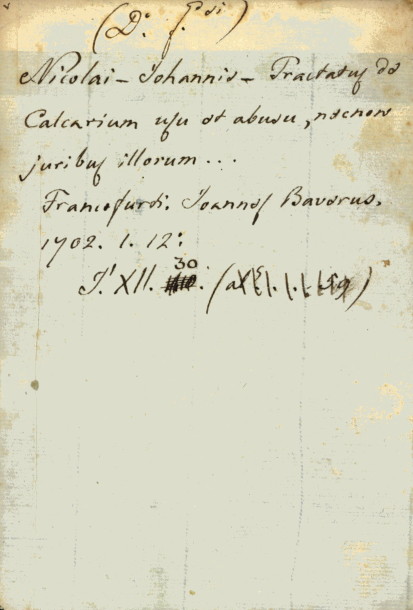 (D. f. Psi)
Nicolai - Johannis - Tractatus de
Calcarium usu et abusu, necnon
juribus illorum ...
Francofurdi. Joannes Baverus.
1702. 1. 12:
J.' XII. 30. (